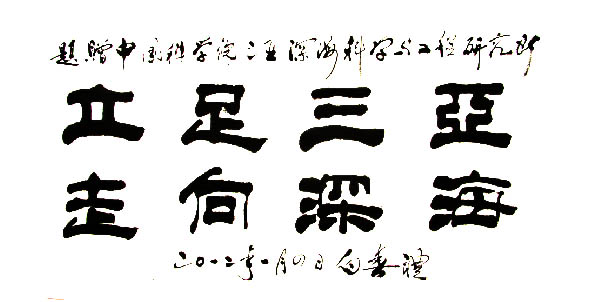 题赠中国科学院三亚深海科学与工程研究所
立足三亞
走向深海
二〇一二年一月四日 白春禮